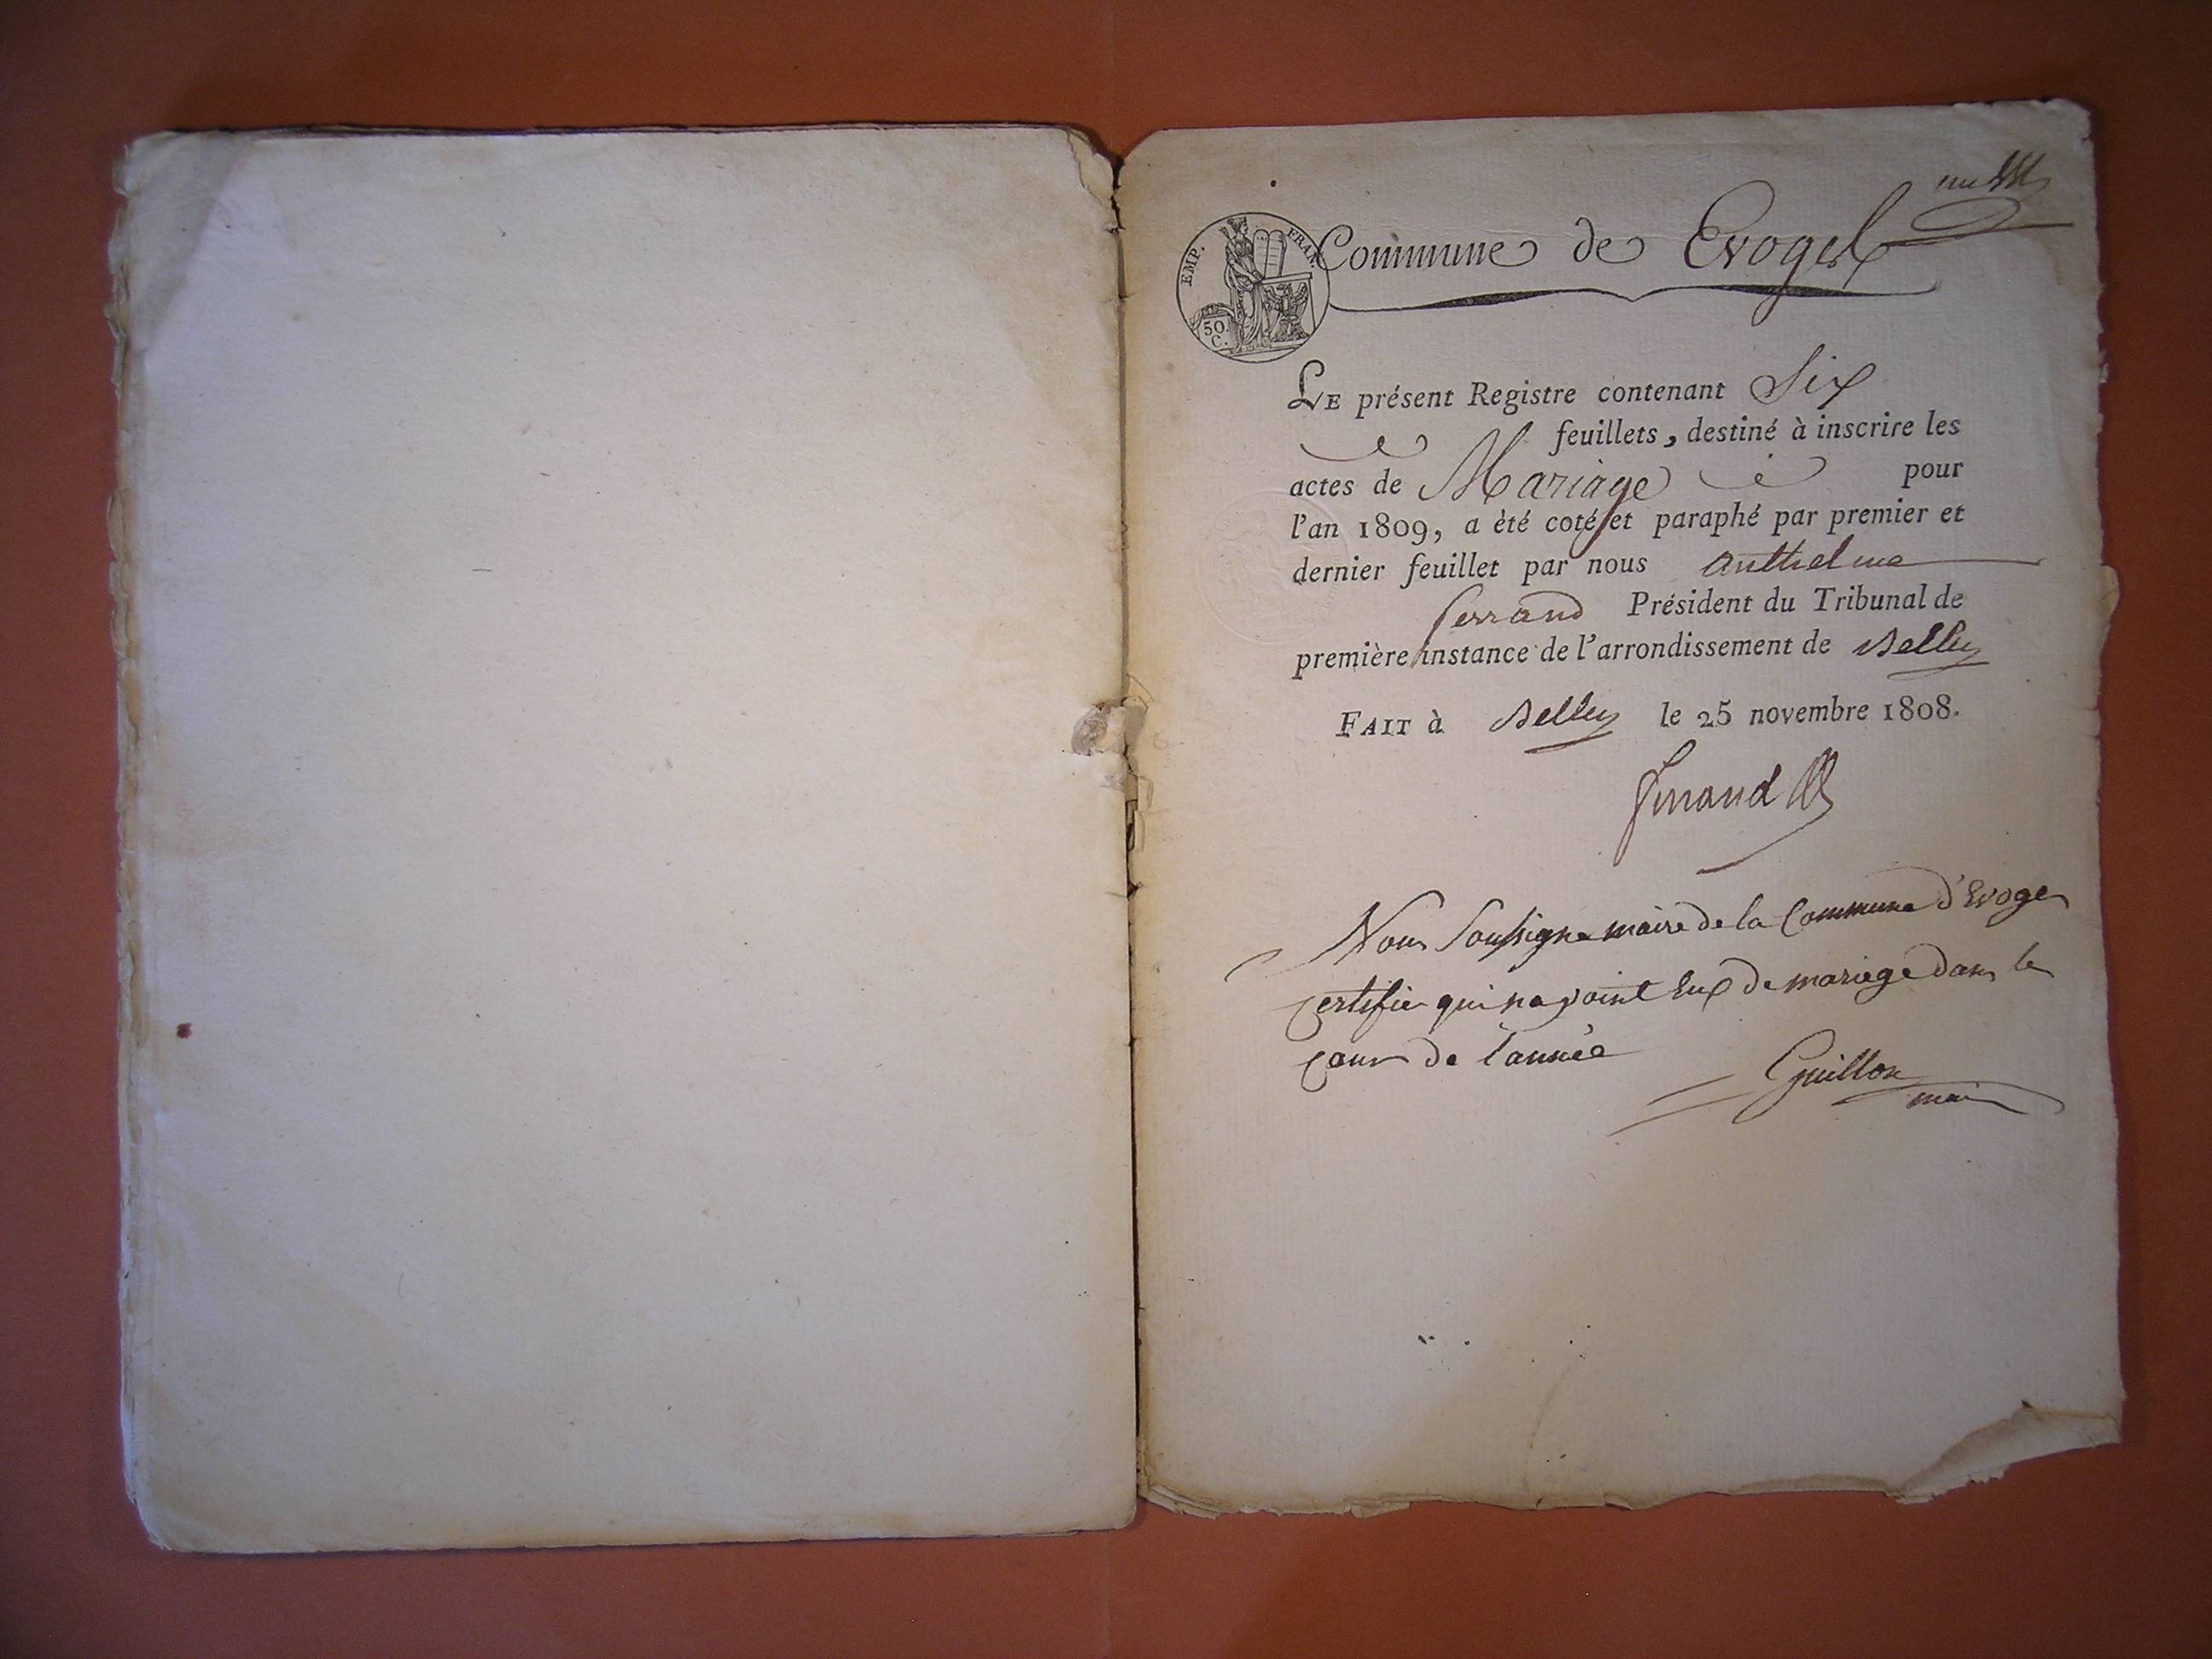 Commune de Evoges
EMP. FRAN.
50.
C.
LE présent Registre contenant Six
feuillets, destiné à inscrire les
actes de Mariage pour
l'an 1809, a été coté et paraphé par premier et
dernier feuillet par nous anthelme
ferrand Président du Tribunal de
première instance de l'arrondissement de Belley
FAIT à Belley le 25 novembre 1808.
ferrand
Nous Soussigne maire de la Commune d'Evoges
Certifie qui na point Eux de mariage dans le
cour de l'année
Guillon
maire